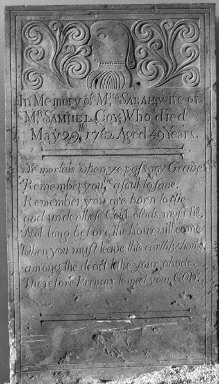 In Memory of Mrs. SARAH wife of
Mr. SAMUEL GOV, Who died
May 29th 1782 Aged 49 Years.
Ye mortals when ye pass my Grave
Remember you've a soul to save.
Remember you are born to die
and underneath Cold clods must lie,
Not long before the hour will come
When you must leave this earthly home
among the dead take your abode
Therefore Prepare to meet your GOD.